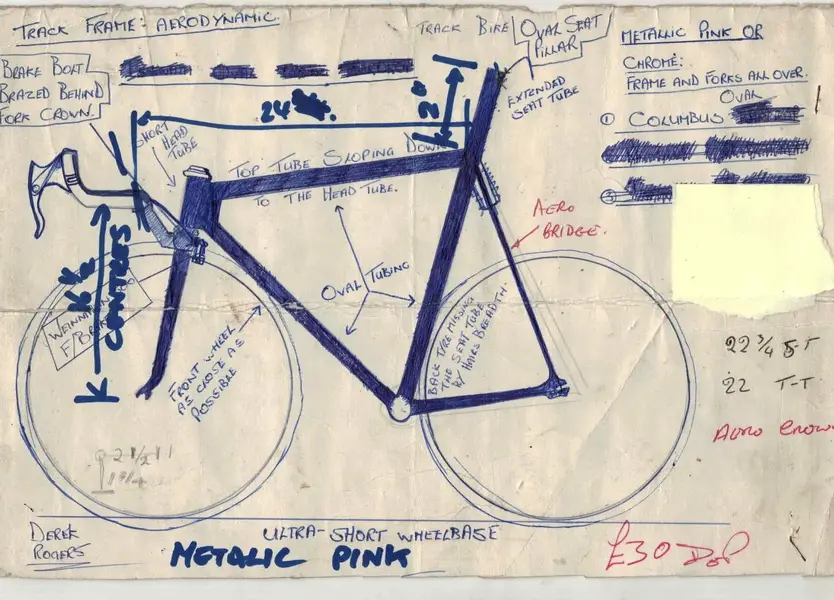 TRACK FRAME: AERODYNAMIC.
TRACK BIKE
OVAL SEAT
PILLAR
METALLIC PINK OR
CHROME:
FRAME AND FORKS ALL OVER.
OVAL
① COLUMBUS
BRAKE BOLT
BRAZED BEHIND
FORK CROWN.
24
2"
EXTENDED
SEAT TUBE
SHORT
HEAD
TUBE
TOP TUBE SLOPING DOWN
TO THE HEAD TUBE.
AERO
BRIDGE.
OVAL TUBING
CENTRES
F/BRAKE
FRONT WHEEL
AS CLOSE AS
POSSIBLE
BACK TYRE MISSING
THE SEAT TUBE
BY HAIRS BREADTH.
22 3/4 S-T
22 T-T
AERO CROWN
2 1/2
DEREK
ROGERS
ULTRA-SHORT WHEELBASE
METALIC PINK
£30 DEP